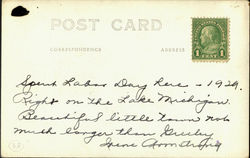 POST CARD
CORRESPONDENCE
ADDRESS
1 CENT 1
Spent Labor Day here - 1929.
Right on the Lake Michigan.
Beautiful little town not
much larger than Greeley
Irene Armstrong